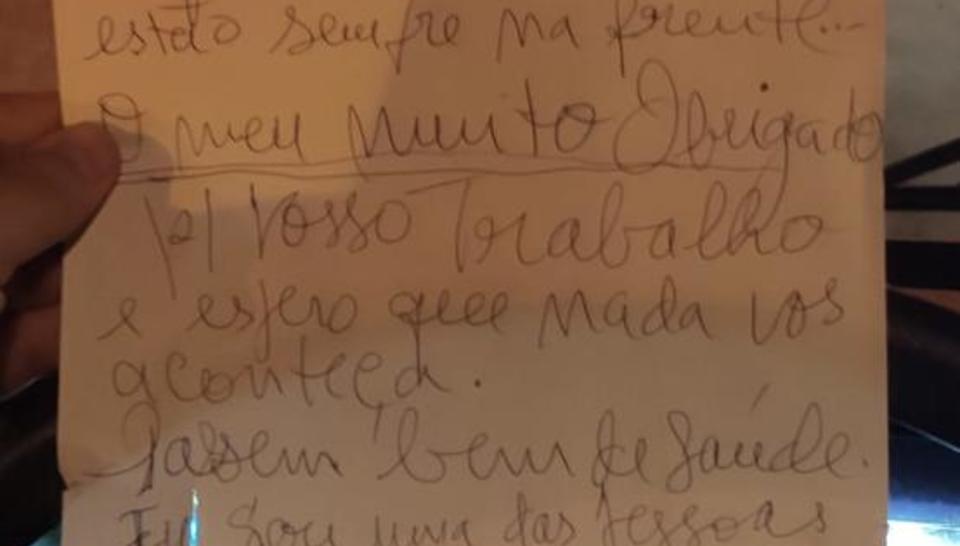 estão sempre na frente...
O meu muito Obrigado
p/ Vosso Trabalho
e espero que nada vos
aconteça.
Passem bem de saúde.
Eu sou uma das pessoas